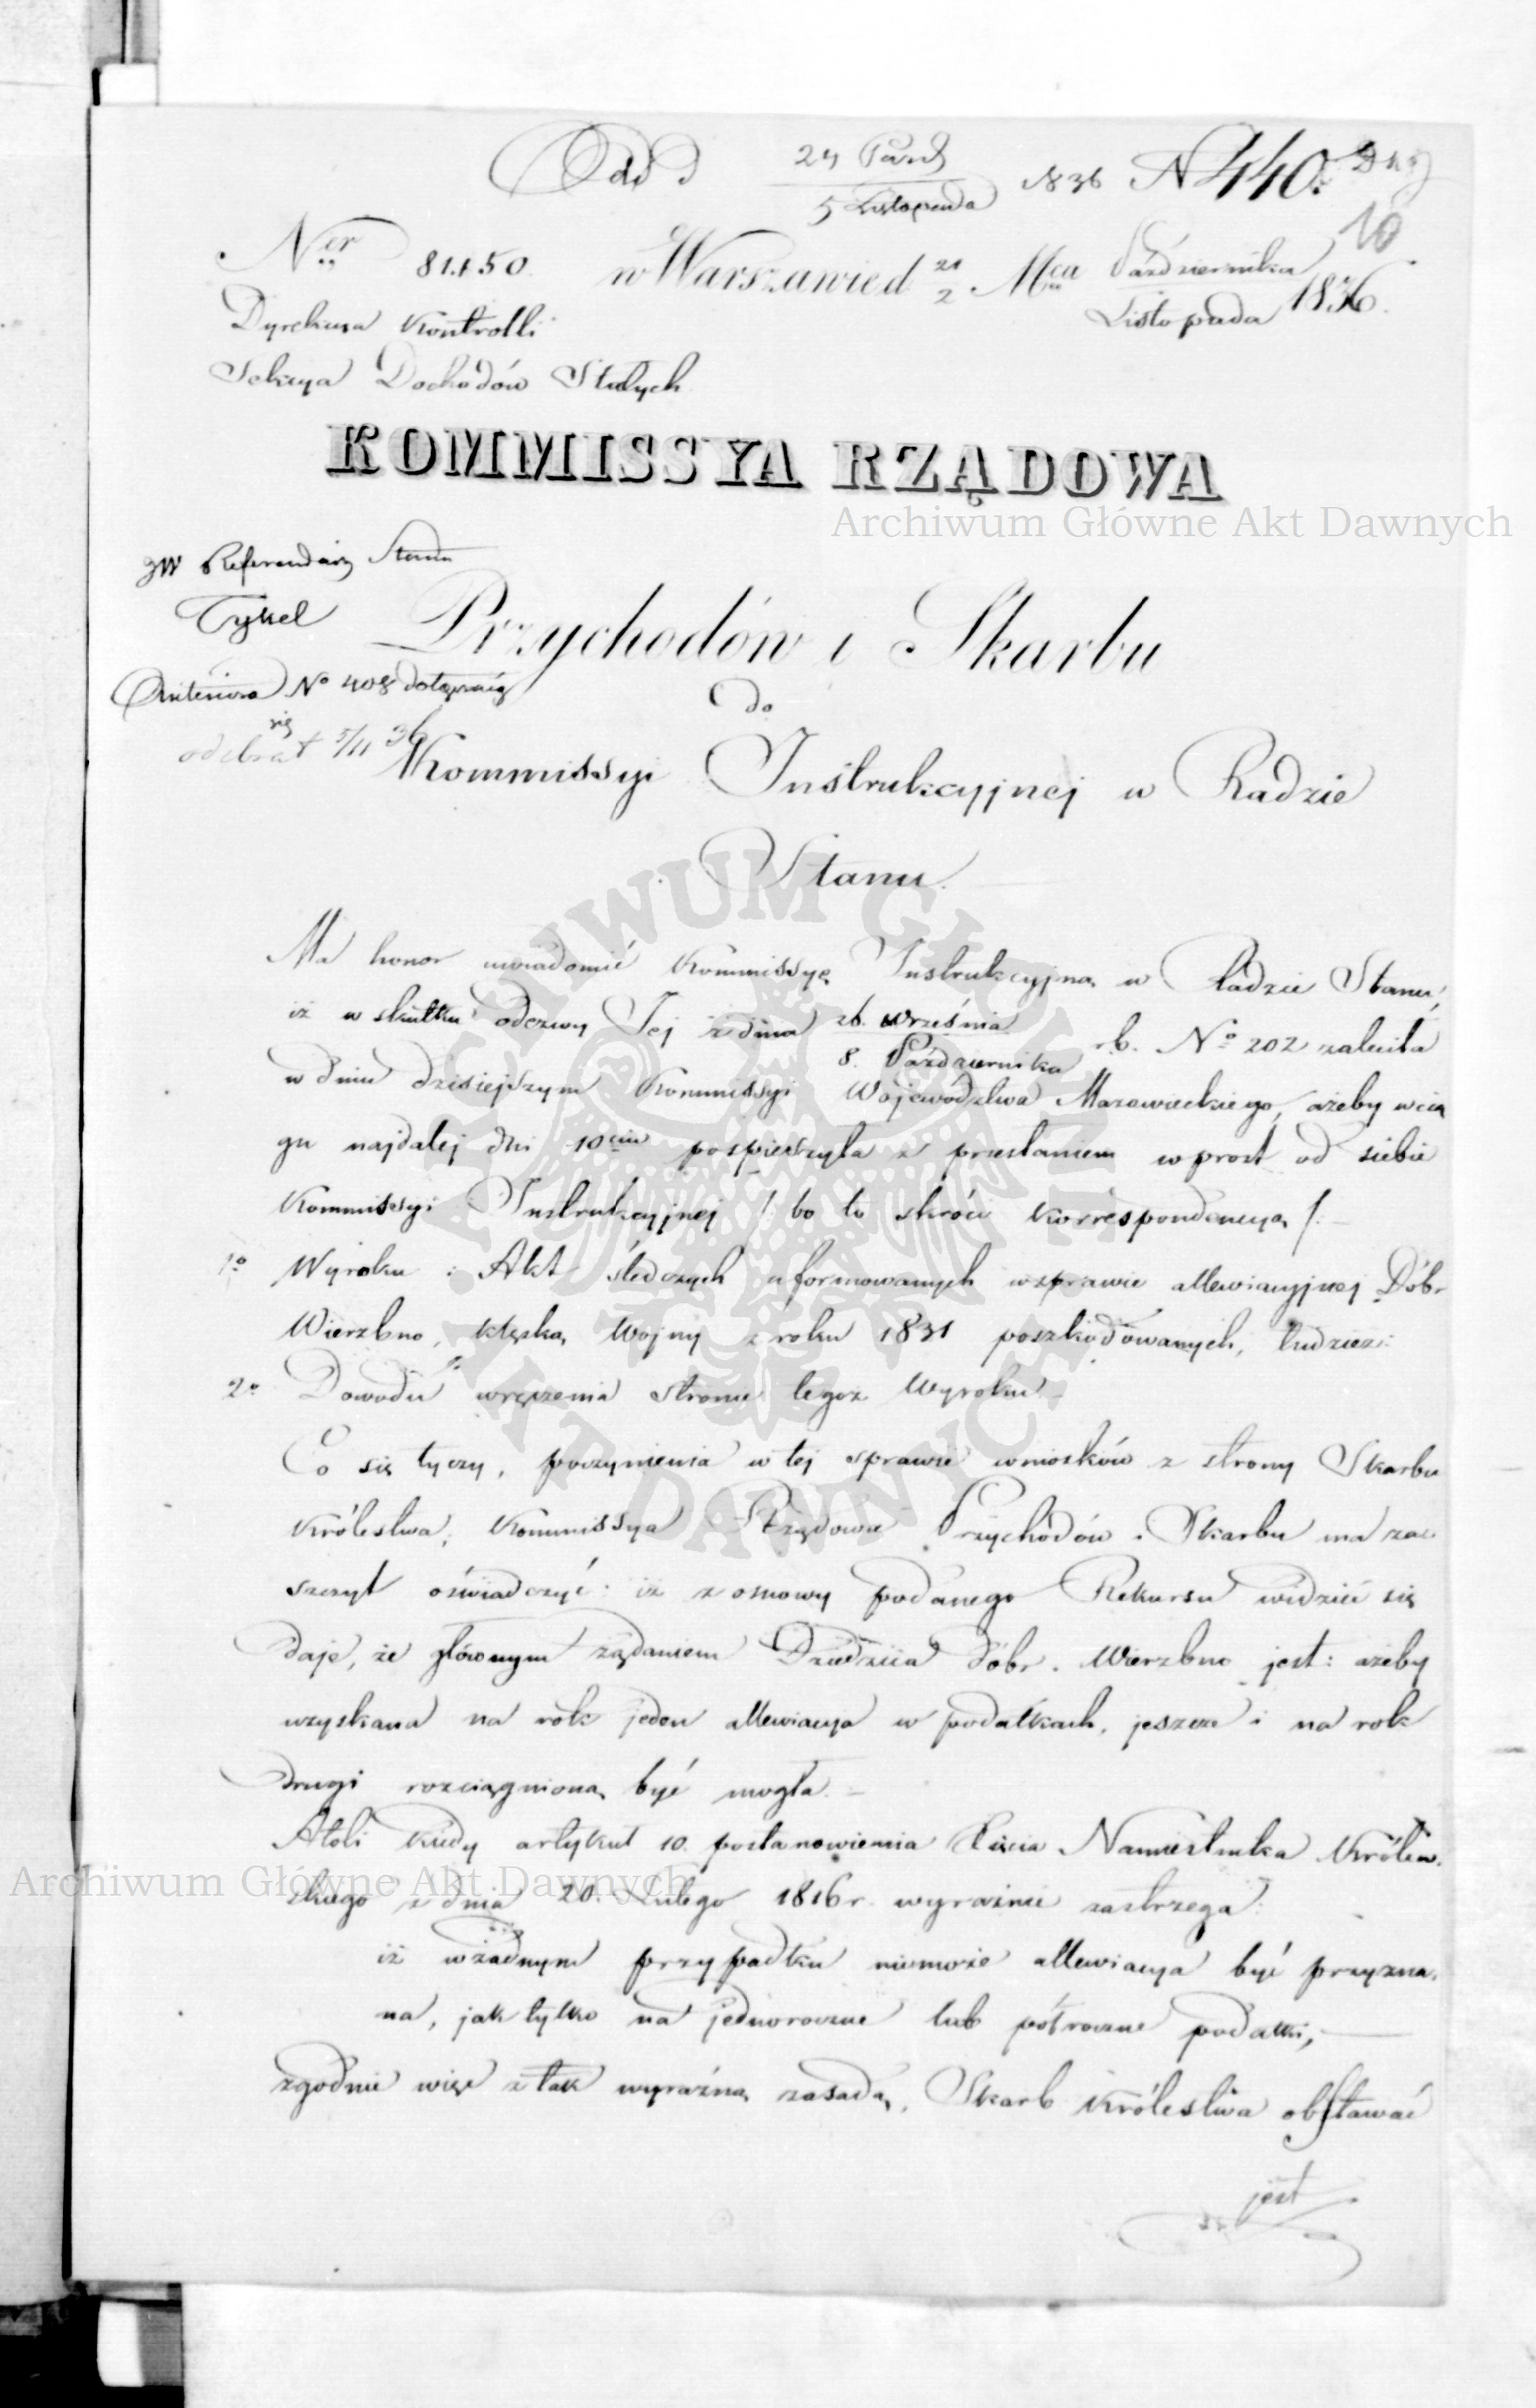 Odd 24 Paźd / 5 Listopada 1836 N 440.
10
Ner 81450 w Warszawie d 21 / 2 Mca Października / Listopada 1836.
Dyrekcya Kontrolli
Sekcya Dochodów Stałych
KOMMISSYA RZĄDOWA
Archiwum Główne Akt Dawnych
JW Referendarz Stanu
Tykel
Przychodów i Skarbu
Anteriora No 408 dołączaią
się
do
odebrał 5/11 36
Kommissyi Instrukcyjnej w Radzie
Stanu.
Ma honor uwiadomić Kommissyę Instrukcyjną w Radzie Stanu,
iż w skutku odezwy Jej z dnia 26. Września / 8. Października r.b. No 202 zaleciła
w dniu dzisiejszym Kommissyi Województwa Mazowieckiego, ażeby w cią
gu najdalej dni 10ciu pospieszyła z przesłaniem wprost od siebie
Kommissyi Instrukcyjnej /: bo to skróci korrespondencyą :/
1o Wyroku i Akt śledczych uformowanych w sprawie allewiacyjnej Dóbr
Wierzbno, klęską Wojny z roku 1831 poszkodowanych, tudzież:
2o Dowodu wręczenia stronie tegoż Wyroku
Co się tyczy, poczynienia w tej sprawie wniosków z strony Skarbu
Królestwa, Kommissya Rządowa Przychodów i Skarbu ma za
szczyt oświadczyć: iż z osnowy podanego Rekursu widzieć się
daje, że głównym żądaniem Dziedzica dóbr Wierzbno jest: ażeby
uzyskana na rok jeden allewiacya w podatkach, jeszcze i na rok
drugi rozciągnioną być mogła.
Atoli kiedy artykuł 10. postanowienia Xięcia Namiestnika Królew.
skiego z dnia 20. Lutego 1816 r. wyraźnie zastrzega:
Archiwum Główne Akt Dawnych
iż w żadnym przypadku niemoże allewiacya być przyzna.
na, jak tylko na jednoroczne lub półroczne podatki,
zgodnie więc z tak wyraźną zasadą, Skarb Królestwa obstawać
jest
ARCHIWUM GŁÓWNE AKT DAWNYCH